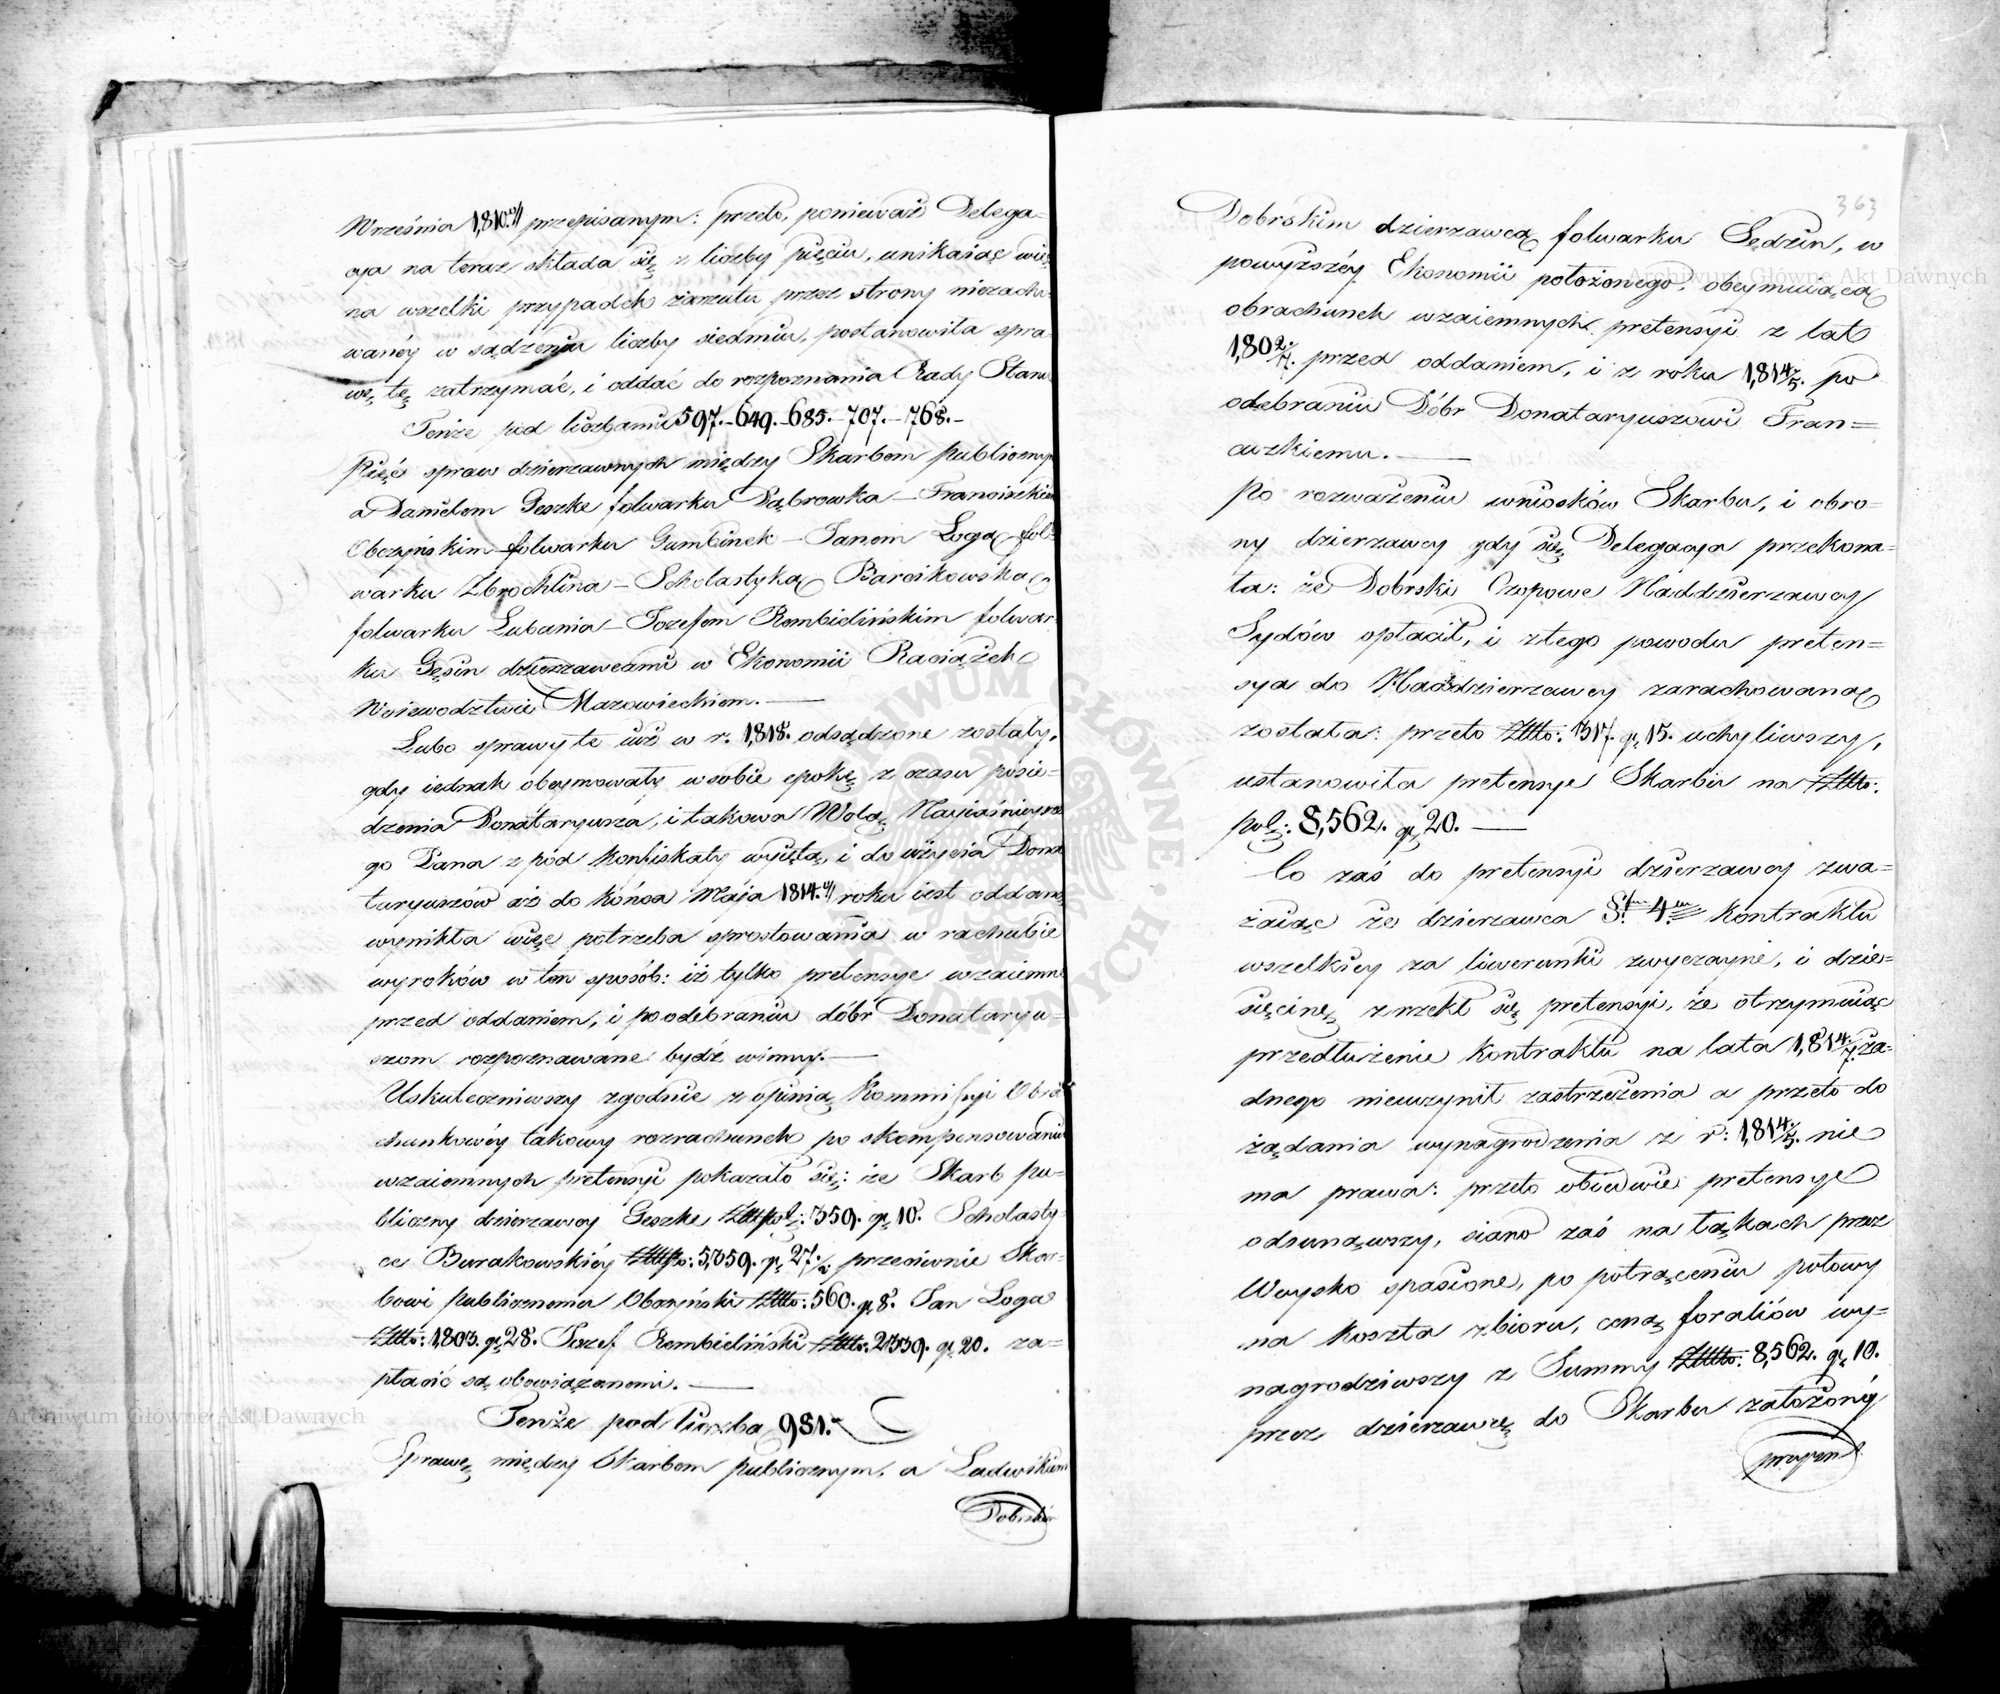 Września 1,810.º/ przepisanym: przeto, ponieważ Delega=
cya na teraz składa się z liczby pięciu, unikaiąc więc
na wszelki przypadek zarzutu przez strony niezacho=
wanéy w sądzeniu liczby siedmiu, postanowiła spra=
wę tę zatrzymać, i oddać do rozpoznania Rady Stanu
Tenże pod liczbami 597.–649.–685.–707.–768.–
Pięć spraw dzierzawnych między Skarbem publicznym
a Danielem Geszke folwarku Dąbrowka – Franciszkiem
Obczyńskim folwarku Gumbinek – Janem Loga fol=
warku Zbrochlina – Scholastyką Barcikowską
folwarku Lubania – Jozefem Rembielińskim folwar=
ku Gęsin dzierzawcami w Ekonomii Raciążek
Woiewodztwie Mazowieckiem. —
Lubo sprawy te iuż w r. 1,818. odsądzone zostały,
gdy iednak obeymowały w sobie epokę z czasu posie=
dzenia Donataryusza, i takowa Wolą Nayiaśnieysze
go Pana z pod konfiskaty wyięta, i do użycia Dona
taryuszów aż do końca Maja 1814.º/ roku iest oddaną
wynikła więc potrzeba sprostowania w rachubie
wyroków w ten sposób: iż tylko pretensye wzaiemne
przed oddaniem, i po odebraniu dóbr Donataryu=
szom rozpoznawane bydź winny. —
Uskuteczniwszy zgodnie z opinią Kommissyi Obra
chunkowéy takowy rozrachunek po skompensowaniu
wzaiemnych pretensyi pokazało się: że Skarb pu=
bliczny dzierzawcy Geszke Złtt pol: 359. gr 10. Scholasty=
ce Burakowskiéy Złtt: 5,059. gr 27./2. przeciwnie Skar=
bowi publicznemu Obczyński Złtt: 560. gr 8. Jan Loga
Złtt: 1,803. gr 28. Jozef Rembieliński Złtt: 2339. gr 20. za=
płacić są obowiązanemi. —
Tenże pod liczbą 981.
Sprawę między Skarbem publicznym, a Ludwikiem
Dobrskim
363
Dobrskim dzierzawcą folwarku Sędzin, w
powyższéy Ekonomii położonego, obeymuiącą
obrachunek wzaiemnych pretensyi z lat
1,802./7. przed oddaniem, i z roku 1,814./5. po
odebraniu Dóbr Donataryuszowi Fran=
cuzkiemu. —
Po rozważeniu wniosków Skarbu, i obro=
ny dzierzawcy gdy się Delegacya przekona=
ła: że Dobrski Czopowe Naddzierzawcy
Żydów opłacił, i z tego powodu preten=
sya do Naddzierzawcy zarachowana
została: przeto Złtt: 317. gr 15. uchyliwszy,
ustanowiła pretensye Skarbu na Złtt:
pol: 8,562. gr 20. —
Co zaś do pretensyi dzierzawcy zwa=
żaiąc że dzierzawca §m 4m kontraktu
wszelkiey za liwerunki zwyczayne, i dzie=
sięcinę zrzekł się pretensyi, że otrzymuiąc
przedłużenie kontraktu na lata 1,814./7. ża=
dnego nieuczynił zastrzeżenia a przeto do
żądania wynagrodzenia z r: 1,814./5. nie
ma prawa: przeto obiedwie pretensye
odsunąwszy, siano zaś na łąkach przez
Woysko spasione, po potrąceniu połowy
na koszta zbioru, ceną foraliów wy=
nagrodziwszy z Summy Złtt: 8,562. gr 10.
przez dzierzawcę do Skarbu założonéy